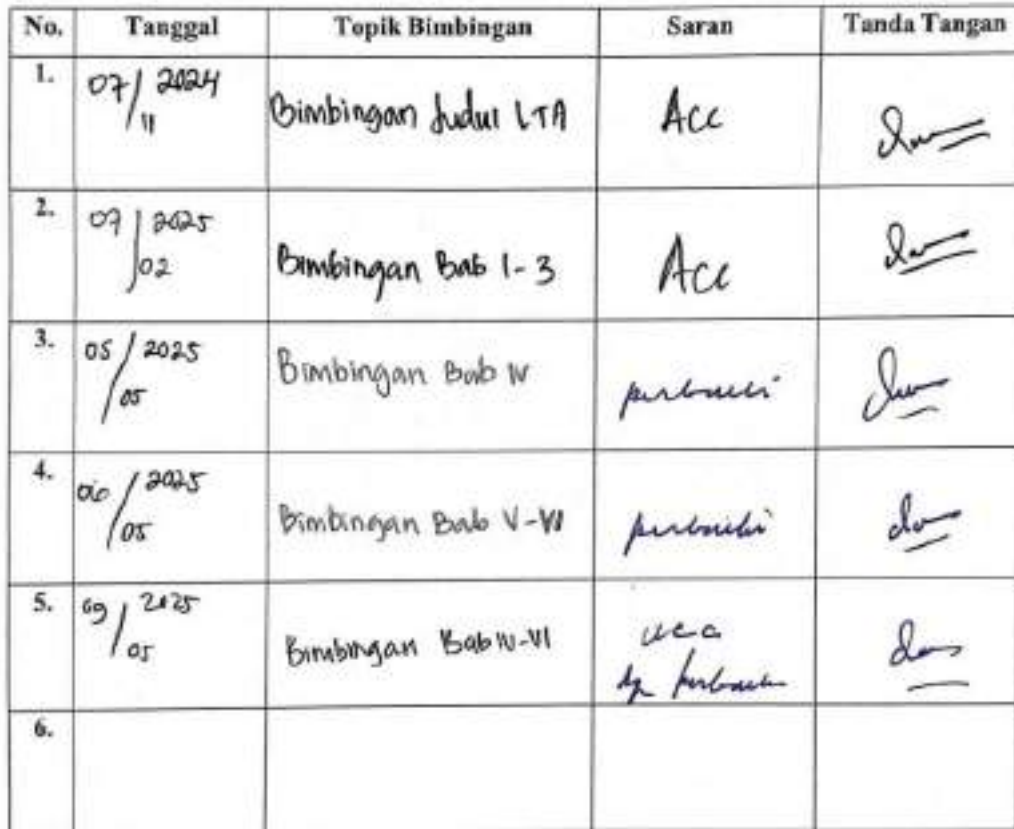 No. Tanggal Topik Bimbingan Saran Tanda Tangan
1. 07/11 2024 Bimbingan Judul LTA Acc
2. 07/02 2025 Bimbingan Bab 1-3 Acc
3. 05/05 2025 Bimbingan Bab IV perbaiki
4. 06/05 2025 Bimbingan Bab V-VI perbaiki
5. 09/05 2025 Bimbingan Bab IV-VI acc
dg perbaiki
6.